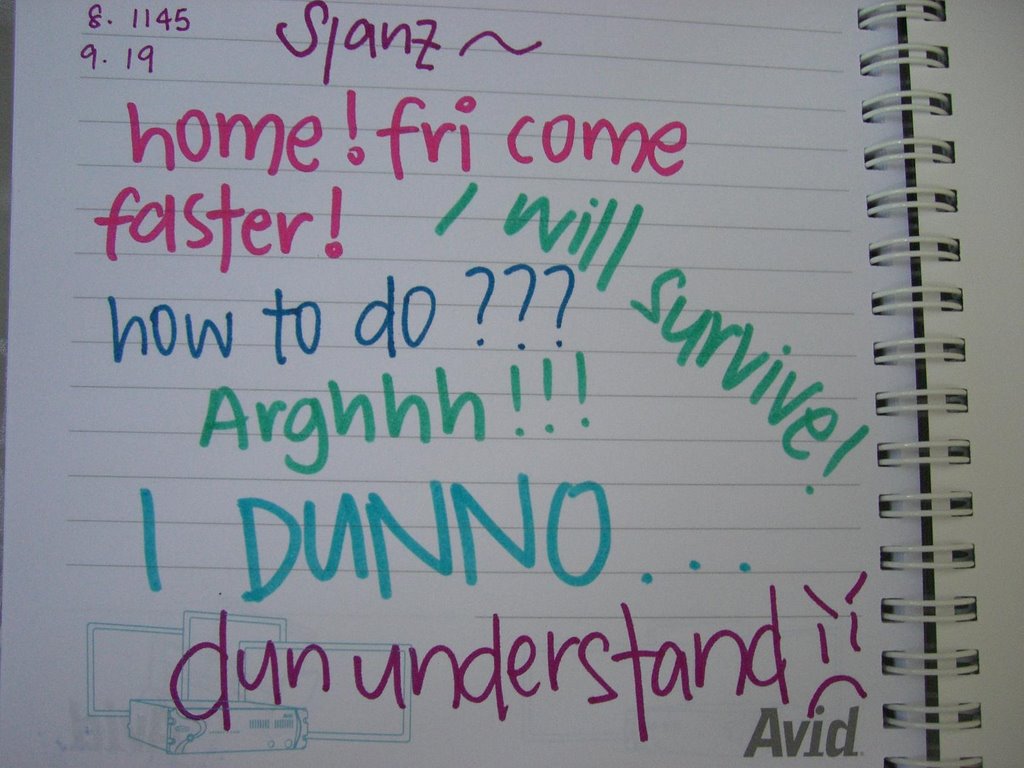 8. 1145
9. 19
Sjanz~
home! fri come
faster!
I will survive!
how to do ???
Arghhh!!!
I DUNNO...
dun understand
Avid